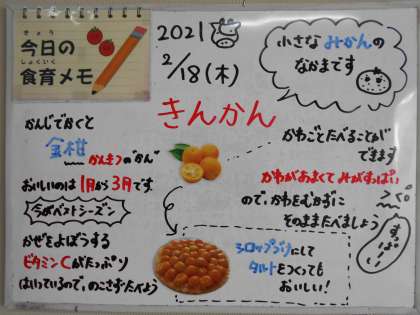 きょう
今日の
しょくいく
食育メモ
2021
2/18(木)
小さなみかんの
なかまです
きんかん
かんじでかくと
金柑
かんきつの"かん"
おいしいのは1月から3月です
今がベストシーズン
かぜをよぼうする
ビタミンCがたっぷり
はいっているので、のこさずたべよう
かわごとたべることが
できます
かわがあまくてみがすっぱい
ので、かわをむかずに
そのままたべましょう
シロップづけにして
タルトをつくっても
おいしい!